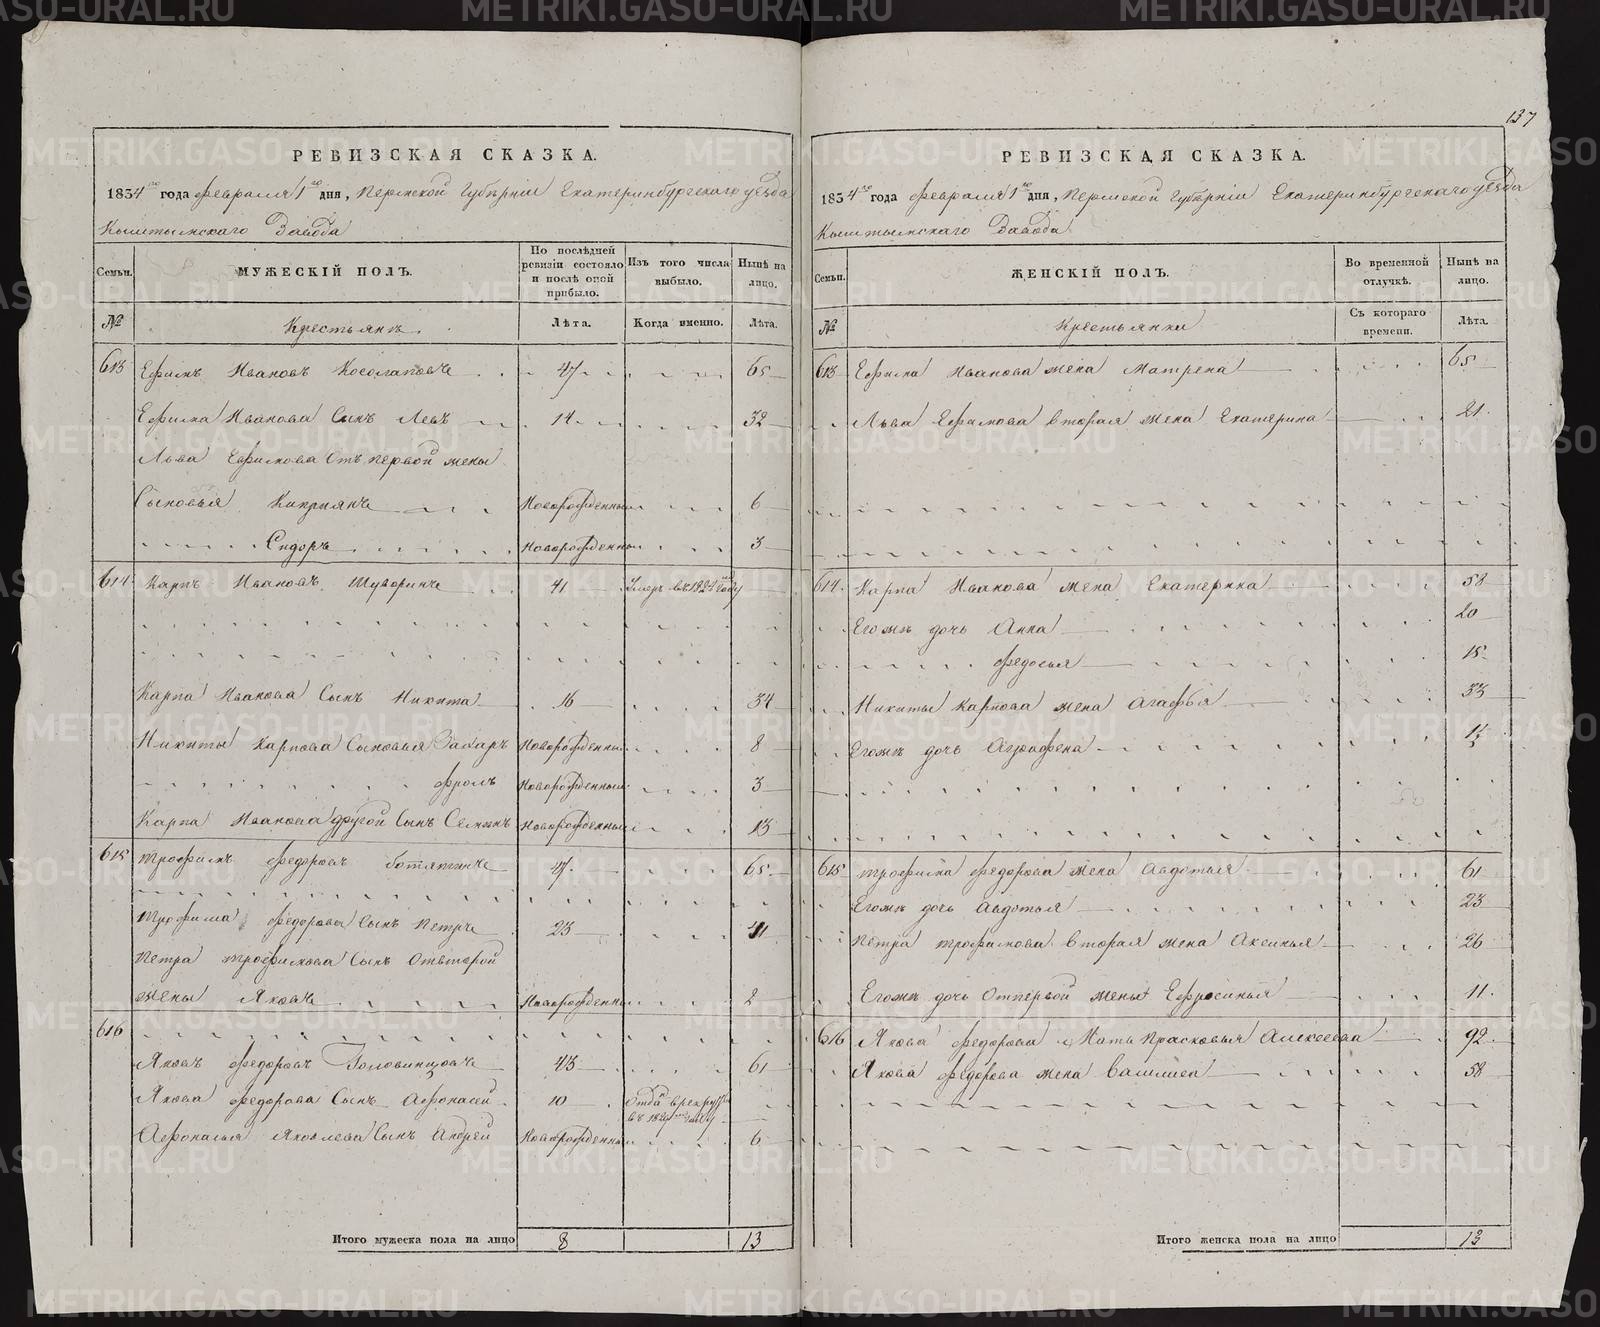 137
РЕВИЗСКАЯ СКАЗКА.
1834го года февраля 1го дня, Пермской Губернiи Екатеринбургскаго уезда
Кыштымскаго Завода
Семьи. МУЖЕСКIЙ ПОЛЪ. По последней ревизiи состояло и после оной прибыло. Изъ того числа выбыло. Ныне на лицо.
№ Крестьянъ. Лета. Когда именно. Лета.
613 Ефимъ Ивановъ Косолаповъ 47 65
Ефима Иванова Сынъ Левъ 14 32
Льва Ефимова Отъ первой жены
Сыновья Киприянъ Новорожденны 6
Сидоръ Новорожденны 3
614 Карпъ Ивановъ Шуворинъ 41 Умеръ въ 1824м году
Карпа Иванова Сынъ Никита 16 34
Никиты Карпова Сыновья Захаръ Новорожденны 8
Фролъ Новорожденны 3
Карпа Иванова другой Сынъ Семенъ Новорожденны 13
615 Трофимъ Федоровъ 47 65
Трофима Федорова Сынъ Петръ 23 41
Петра Трофимова Сынъ Отвторой
жены Яковъ Новорожденны 2
616
Яковъ Федоровъ Головинцовъ 43 61
Якова Федорова Сынъ Афонасей 10 Отданъ в рекруты
въ году
Афонасья Яковлева Сынъ Андрей Новорожденны 6
Итого мужеска пола на лицо 8 13
РЕВИЗСКАЯ СКАЗКА.
1834го года февраля 1го дня, Пермской Губернiи Екатеринбургскаго уезда
Кыштымскаго Завода
Семьи. ЖЕНСКIЙ ПОЛЪ. Во временной отлучке. Ныне на лицо.
№ Крестьянки Съ котораго времени. Лета.
613 Ефима Иванова жена Матрена 65
Льва Ефимова вторая жена Екатерина 21
614 Карпа Иванова жена Екатерина 58
Егожъ дочь Анна 20
Федосья 18
Никиты Карпова жена Агафья 33
Егожъ дочь Аграфена
615 Трофима Федорова жена Авдотья 61
Егожъ дочь Авдотья 23
Петра Трофимова вторая жена Аксинья 26
Егожъ дочь Отпервой жены Ефросинья 11
616 Якова Федорова Мать Прасковья Алексеева 92
Якова Федорова жена Васлиса 58
Итого женска пола на лицо 13
METRIKI.GASO-URAL.RU